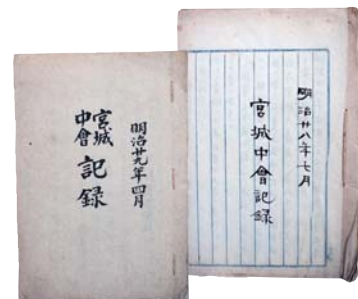 明治廿九年四月
宮城
中會
記録
明治廿八年七月
宮城中會記録